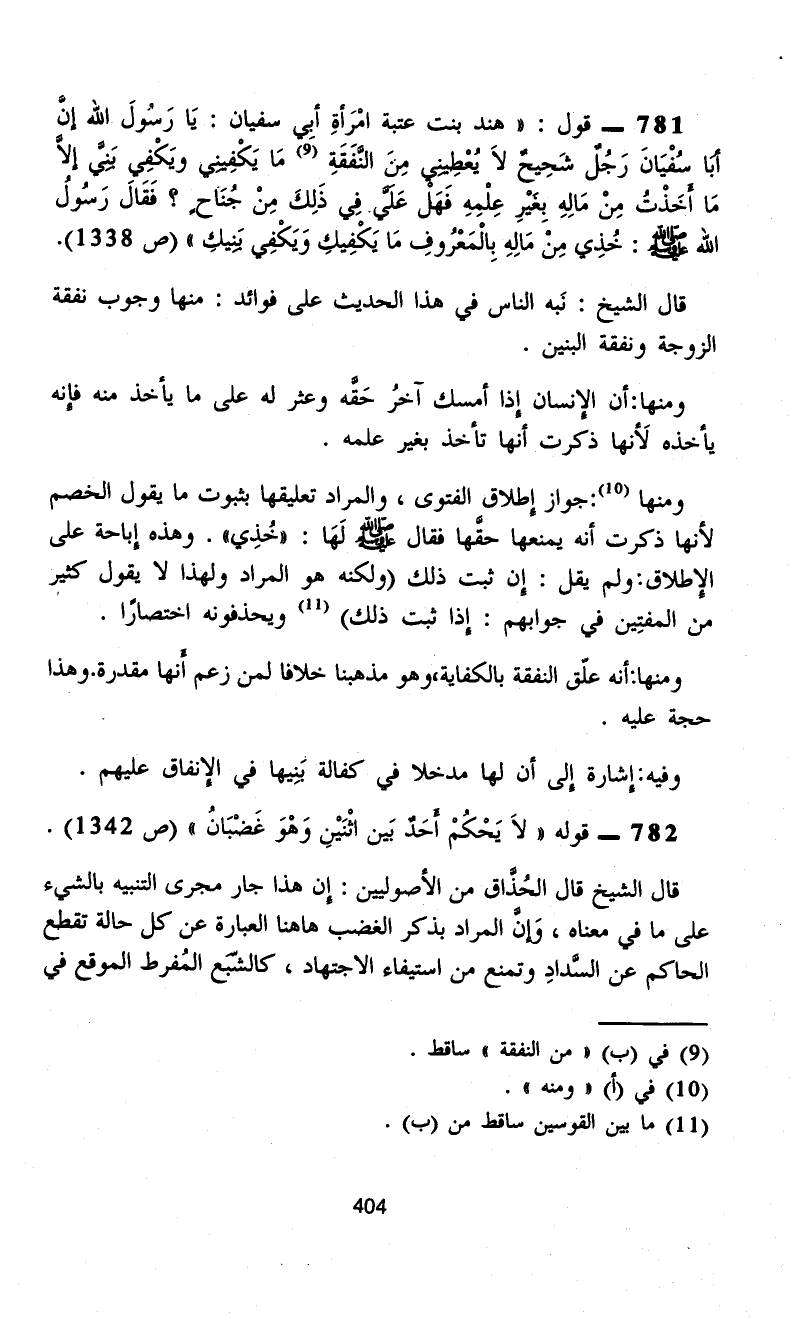 781 — قول : « هند بنت عتبة امْرَأةِ أبِي سفيان : يَا رَسُولَ الله إنَّ
أبَا سُفْيَانَ رَجُلٌ شَحِيحٌ لاَ يُعْطِينِي مِنَ النَّفَقَةِ (9) مَا يَكْفِينِي ويَكْفِي بَنِيَّ إلاَّ
مَا أَخَذْتُ مِنْ مَالِهِ بِغَيْرِ عِلْمِهِ فَهَلْ عَلَيَّ فِي ذَلِكَ مِنْ جُنَاحٍ ؟ فَقَالَ رَسُولُ
الله ﷺ : خُذِي مِنْ مَالِهِ بِالْمَعْرُوفِ مَا يَكْفِيكِ وَيَكْفِي بَنِيكِ » (ص 1338).
قال الشيخ : نَبه الناس في هذا الحديث على فوائد : منها وجوب نفقة
الزوجة ونفقة البنين .
ومنها:أن الإنسان إذا أمسك آخرُ حَقَّه وعثر له على ما يأخذ منه فإنه
يأخذه لَأنها ذكرت أنها تأخذ بغير علمه .
ومنها (10):جواز إطلاق الفتوى ، والمراد تعليقها بثبوت ما يقول الخصم
لأنها ذكرت أنه يمنعها حقَّها فقال ﷺ لَهَا : «خُذِي» . وهذه إباحة على
الإطلاق:ولم يقل : إن ثبت ذلك (ولكنه هو المراد ولهذا لا يقول كثير
من المفتِين في جوابهم : إذا ثبت ذلك) (11) ويحذفونه اختصارًا .
ومنها:أنه علّق النفقة بالكفاية،وهو مذهبنا خلافا لمن زعم أَنها مقدرة.وهذا
حجة عليه .
وفيه:إشارة إلى أن لها مدخلا في كفالة بَنِيها في الإنفاق عليهم .
782 — قوله « لاَ يَحْكُمْ أَحَدٌ بَين اثْنَيْنِ وَهْوَ غَضْبَانُ » (ص 1342) .
قال الشيخ قال الحُذَّاق من الأصوليين : إن هذا جار مجرى التنبيه بالشيء
على ما في معناه ، وَإنَّ المراد بذكر الغضب هاهنا العبارة عن كل حالة تقطع
الحاكم عن السَّدادِ وتمنع من استيفاء الاجتهاد ، كالشّبَع المُفرط الموقع في
(9) في (ب) « من النفقة » ساقط .
(10) في (أ) « ومنه » .
(11) ما بين القوسين ساقط من (ب) .
404